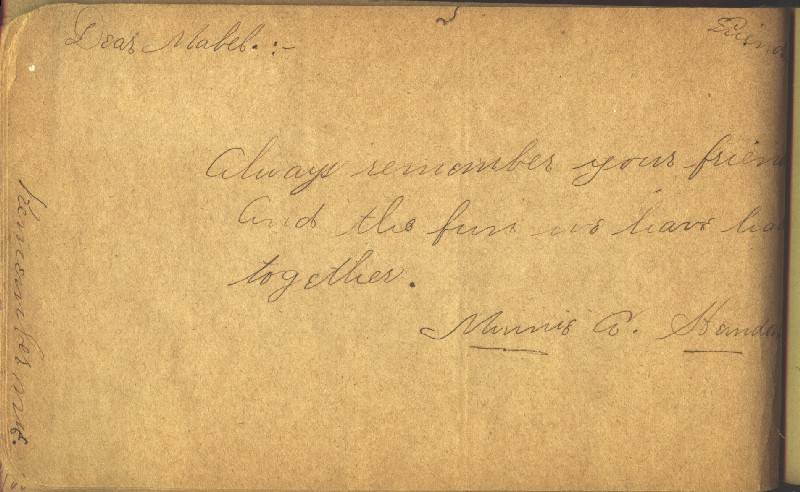 Dear Mabel. :-
Friend
Always remember your frien
And the fun we have ha
together.
Minnie A.
Remember me.